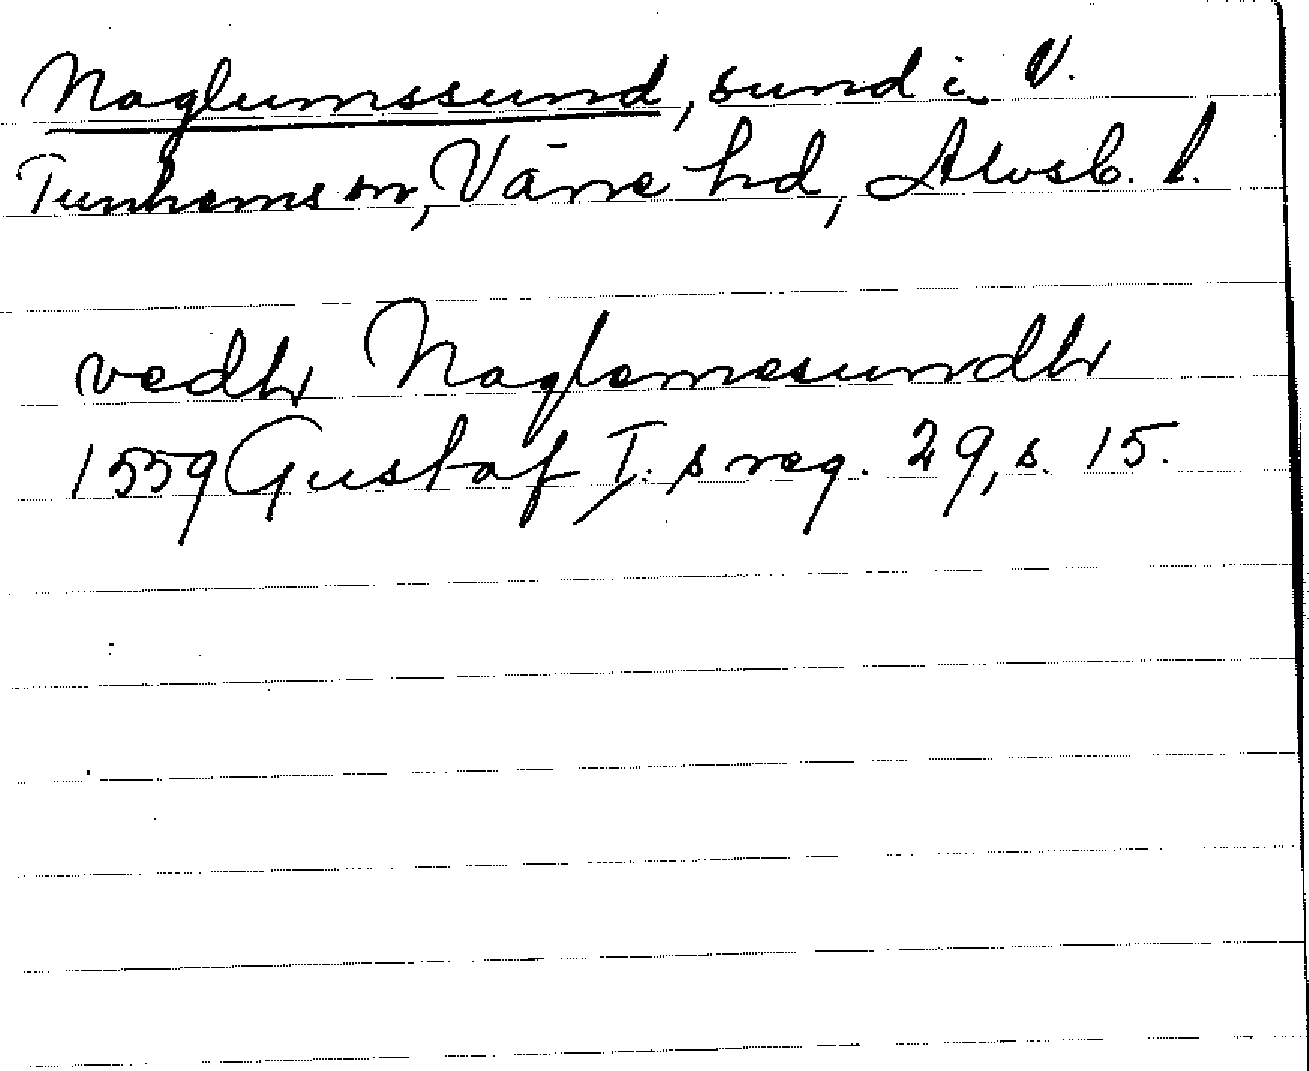 Naglumssund, sund i V.
Tunhems sn, Väne hd, Älvsb. l.
vedh Naglomesundh
1559 Gustaf I:s reg. 29, s. 15.